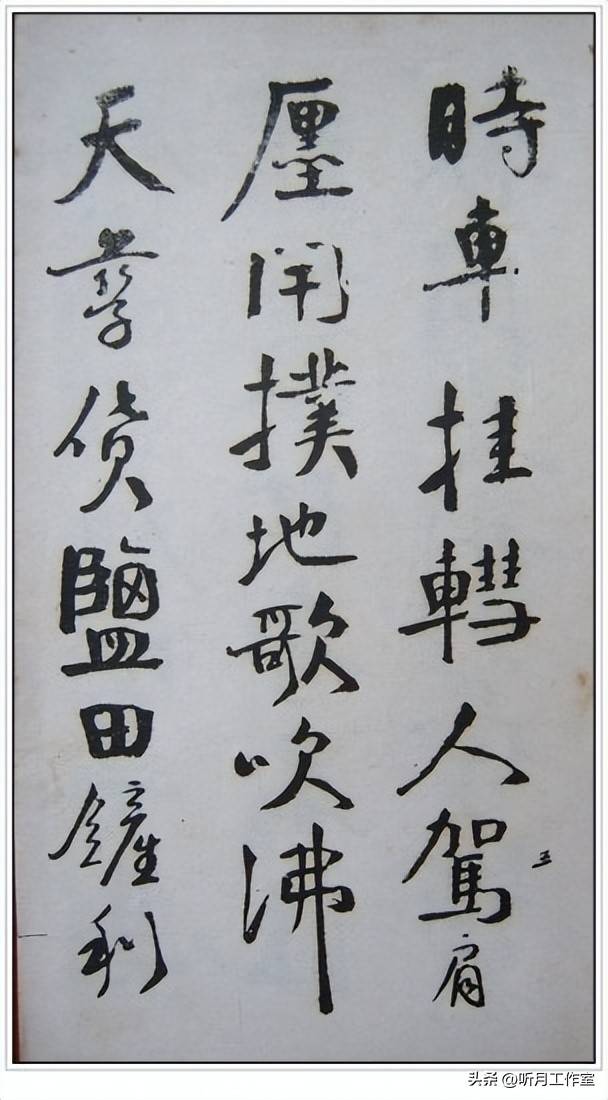 時車挂轊人駕肩
廛閈撲地歌吹沸
天孳貨鹽田鏟利
头条 @听月工作室